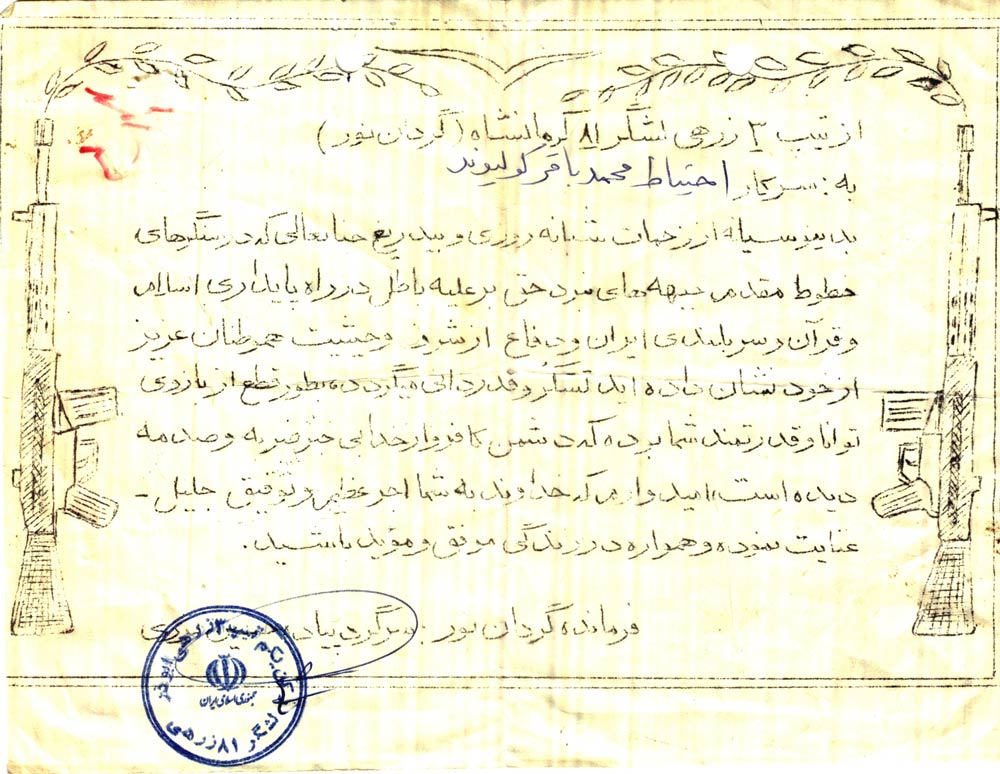 از تیپ ۳ زرهی لشگر ۸۱ کرمانشاه (گردان نور)
به: سرکار احتیاط محمد باقر کولیوند
بدینوسیله از زحمات شبانه روزی و بیدریغ جنابعالی که در سنگرهای
خطوط مقدم جبهه های نبرد حق بر علیه باطل در راه پایداری اسلام
و قرآن و سربلندی ایران و دفاع از شرف و حیثیت هموطنان عزیز
از خود نشان داده اید تشکر و قدردانی میگردد بطور قطع از بازوی
توانا و قدرتمند شما بوده که دشمن کافر وار خدایی جز ضربه و صدمه
دیده است، امیدوارم که خداوند به شما اجر عظیم و توفیق جلیل -
عنایت نموده و همواره در زندگی موفق و مؤید باشید.
فرمانده گردان نور: سرگرد پیاده
تیپ ۳ زرهی ابوذر
لشگر ۸۱ زرهی
جمهوری اسلامی ایران